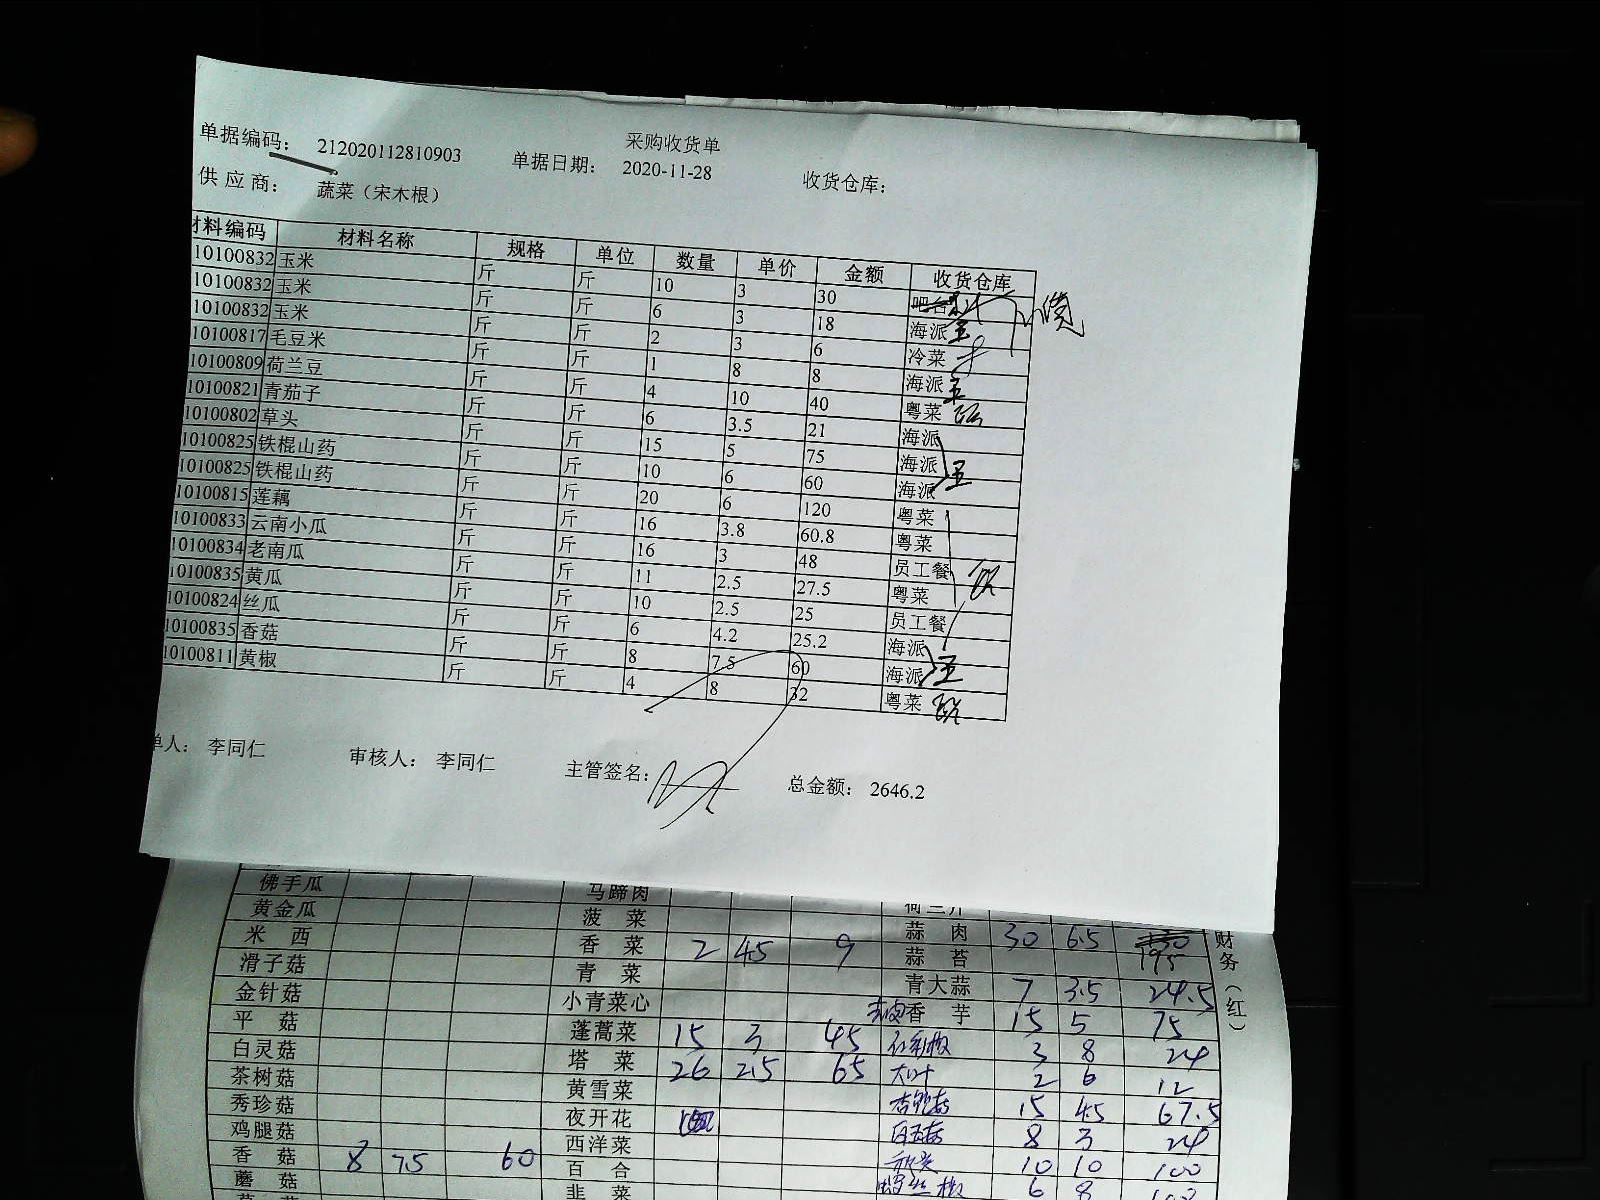 采购收货单
单据编码： 212020112810903 单据日期： 2020-11-28 收货仓库：
供 应 商： 蔬菜（宋木根）
材料编码 材料名称 规格 单位 数量 单价 金额 收货仓库
10100832 玉米 斤 斤 10 3 30 吧台
10100832 玉米 斤 斤 6 3 18 海派 王
10100832 玉米 斤 斤 2 3 6 冷菜
10100817 毛豆米 斤 斤 1 8 8 海派 王
10100809 荷兰豆 斤 斤 4 10 40 粤菜
10100821 青茄子 斤 斤 6 3.5 21 海派
10100802 草头 斤 斤 15 5 75 海派
10100825 铁棍山药 斤 斤 10 6 60 海派 王
10100825 铁棍山药 斤 斤 20 6 120 粤菜
10100815 莲藕 斤 斤 16 3.8 60.8 粤菜
10100833 云南小瓜 斤 斤 16 3 48 员工餐
10100834 老南瓜 斤 斤 11 2.5 27.5 粤菜
10100835 黄瓜 斤 斤 10 2.5 25 员工餐
10100824 丝瓜 斤 斤 6 4.2 25.2 海派
10100835 香菇 斤 斤 8 7.5 60 海派 王
10100811 黄椒 斤 斤 4 8 32 粤菜
单人： 李同仁 审核人： 李同仁 主管签名： 总金额： 2646.2
佛手瓜 马蹄肉
黄金瓜 菠 菜 蒜 肉 30 6.5 195
米 西 香 菜 2 4.5 9 蒜 苔
滑子菇 青 菜 青大蒜 7 3.5 24.5
金针菇 小青菜心 去皮香 芋 15 5 75
平 菇 蓬蒿菜 15 3 45 3 8 24
白灵菇 塔 菜 26 2.5 65 大叶 2 6 12
茶树菇 黄雪菜 杏鲍菇 15 4.5 67.5
秀珍菇 夜开花 白玉菇 8 3 24
鸡腿菇 西洋菜 10 10 100
香 菇 8 7.5 60 百 合 6 8
蘑 菇 韭 菜
财务（红）